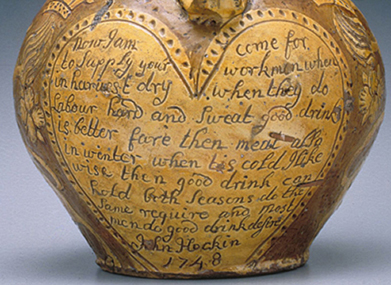 Now I am come for
to supply your workmen when
in harvest dry when they do
Labour hard and sweat good drink
is better fare then meat also
in winter when tis cold I like
wise then good drink can
hold both seasons do the
same require and most
men do good drink desire
John Hockin
1748